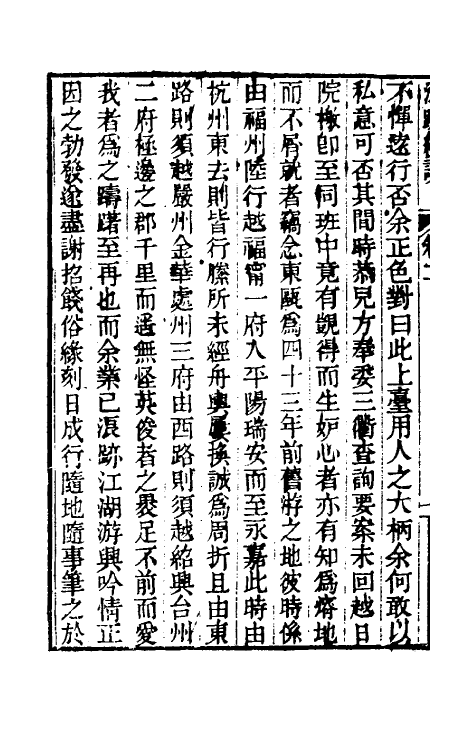 不憚遠行否余正色對曰此上臺用人之大柄余何敢以
私意可否其間時恭兒方奉委三衢查詢要案未回越日
院檄卽至同班中竟有覬得而生妒心者亦有知爲瘠地
而不屑就者竊念東甌爲四十三年前舊游之地彼時係
由福州陸行越福甯一府入平陽瑞安而至永嘉此時由
杭州東去則皆行縢所未經舟輿屢換誠爲周折且由東
路則須越嚴州金華處州三府由西路則須越紹興台州
二府極邊之郡千里而遙無怪英俊者之裹足不前而愛
我者爲之躊躇至再也而余業已浪跡江湖游興吟情正
因之勃發遂盡謝招餞俗緣刻日成行隨地隨事筆之於